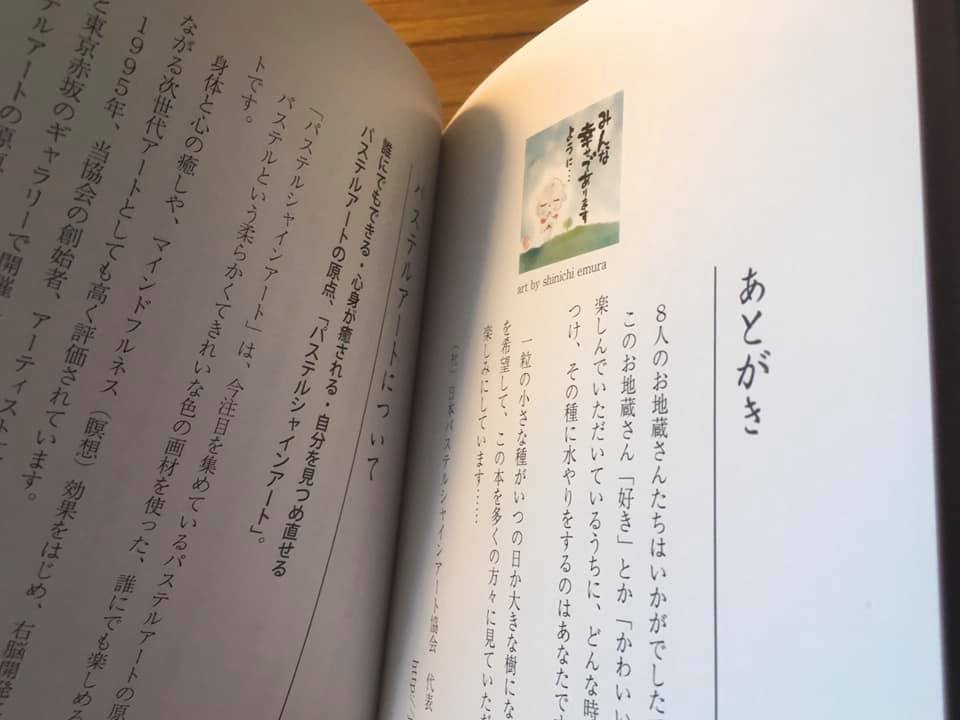 あとがき
8人のお地蔵さんたちはいかがでした
このお地蔵さん「好き」とか「かわいい
楽しんでいただいているうちに、どんな時
つけ、その種に水やりをするのはあなたで
一粒の小さな種がいつの日か大きな樹にな
を希望して、この本を多くの方々に見ていただ
楽しみにしています……
日本パステルシャインアート協会 代表
みんな
幸せであります
ように…
art by shinichi emura
パステルアートについて
誰にでもできる・心身が癒される・自分を見つめ直せる
パステルアートの原点、「パステルシャインアート」。
「パステルシャインアート」は、今注目を集めているパステルアートの原
パステルという柔らかくてきれいな色の画材を使った、誰にでも楽しめる
トです。
身体と心の癒しや、マインドフルネス（瞑想）効果をはじめ、右脳開発
ながる次世代アートとしても高く評価されています。
1995年、当協会の創始者、アーティスト
と東京赤坂のギャラリーで開催
テルアートの原